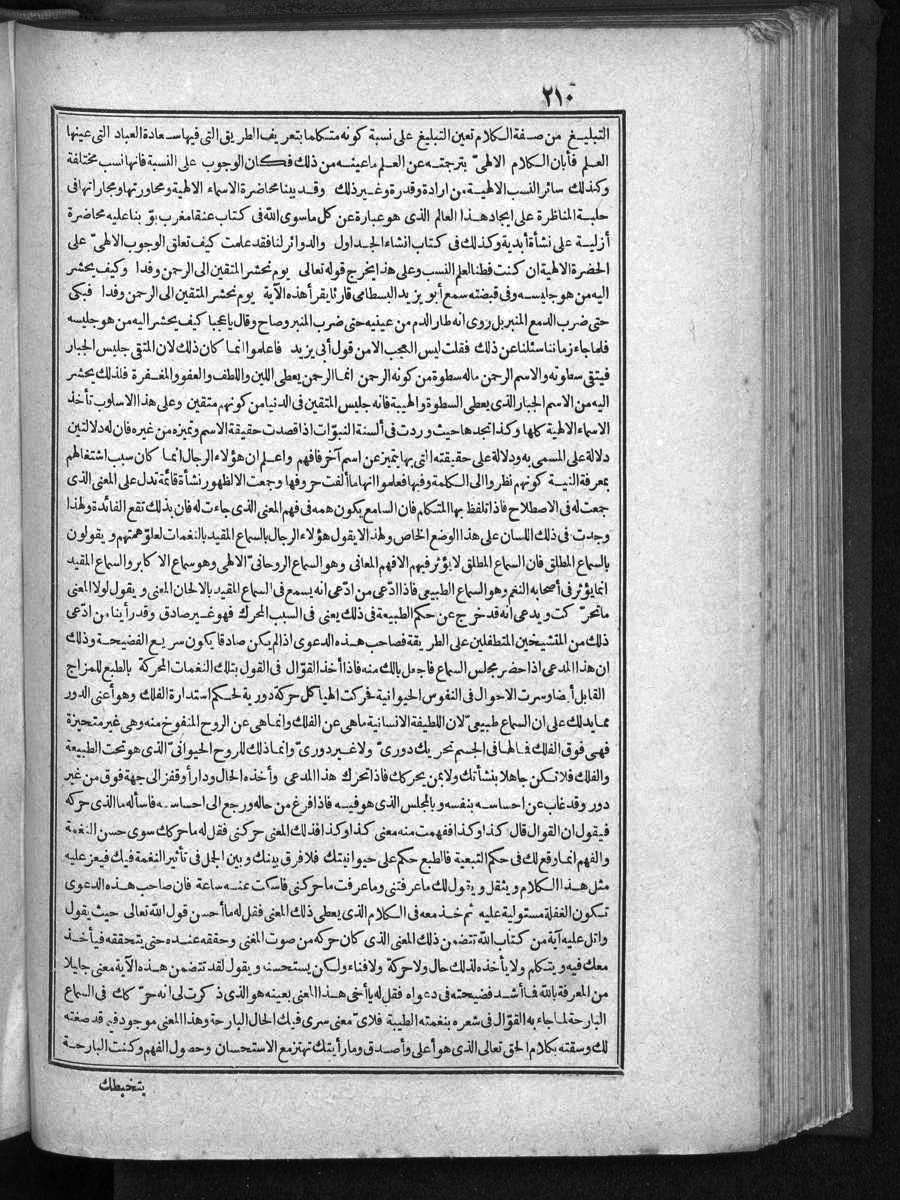 ٢١٠
التبليغ من صفة الكلام تعين التبليغ على نسبة كونه متكلما بتعريف الطريق التى فيها سعادة العباد التى عينها
العلم فأبان الكلام الالهىّ بترجمته عن العلم ما عينه من ذلك فكان الوجوب على النسبة فانها نسب مختلفة
وكذلك سائر النسب الالهية من ارادة وقدرة وغير ذلك وقد بينا محاضرة الاسماء الالهية ومحاورتها ومجاراتها فى
حلبة المناظرة على ايجاد هذا العالم الذى هو عبارة عن كل ما سوى الله فى كتاب عنقا مغرب بوّبنا عليه محاضرة
أزلية على نشأة أبدية وكذلك فى كتاب انشاء الجداول والدوائر لنا فقد علمت كيف تعلق الوجوب الالهىّ على
الحضرة الالهية ان كنت فطنا لعلم النسب وعلى هذا يخرج قوله تعالى يوم نحشر المتقين الى الرحمن وفدا وكيف يحشر
اليه من هو جليسه وفى قبضته سمع أبو يزيد البسطامى قارئا يقرأ هذه الآية يوم نحشر المتقين الى الرحمن وفدا فبكى
حتى ضرب الدمع المنبر بل روى انه طار الدم من عينيه حتى ضرب المنبر وصاح وقال يا عجبا كيف يحشر اليه من هو جليسه
فلما جاء زماننا سئلنا عن ذلك فقلت ليس العجب الا من قول أبى يزيد فاعلموا انما كان ذلك لان المتقى جليس الجبار
فيتقى سطوته والاسم الرحمن ماله سطوة من كونه الرحمن انما الرحمن يعطى اللين واللطف والعفو والمغفرة فلذلك يحشر
اليه من الاسم الجبار الذى يعطى السطوة والهيبة فانه جليس المتقين فى الدنيا من كونهم متقين وعلى هذا الاسلوب تأخذ
الاسماء الالهية كلها وكذا تجدها حيث وردت فى ألسنة النبوّات اذا قصدت حقيقة الاسم وتميزه من غيره فان له دلالتين
دلالة على المسمى به ودلالة على حقيقته التى بها يتميز عن اسم آخر فافهم واعلم ان هؤلاء الرجال انما كان سبب اشتغالهم
بمعرفة النية كونهم نظروا الى الكلمة وفيها فعلموا انها ما ألفت حروفها وجمعت الا لظهور نشأة قائمة تدل على المعنى الذى
جمعت له فى الاصطلاح فاذا تلفظ بها المتكلم فان السامع يكون همه فى فهم المعنى الذى جاءت له فان بذلك تقع الفائدة ولهذا
وجدت فى ذلك اللسان على هذا الوضع الخاص ولهذا لا يقول هؤلاء الرجال بالسماع المقيد بالنغمات لعلوّ همتهم ويقولون
بالسماع المطلق فان السماع المطلق لا يؤثر فيهم الا فهم المعانى وهو السماع الروحانىّ الالهى وهو سماع الاكابر والسماع المقيد
انما يؤثر فى أصحابه النغم وهو السماع الطبيعى فاذا ادّعى من ادّعى انه يسمع فى السماع المقيد بالالحان المعنى ويقول لولا المعنى
ما تحرّكت ويدعى انه قد خرج عن حكم الطبيعة فى ذلك يعنى فى السبب المحرك فهو غير صادق وقد رأينا من ادّعى
ذلك من المتشيخين المتطفلين على الطريقة فصاحب هذه الدعوى اذا لم يكن صادقا يكون سريع الفضيحة وذلك
ان هذا المدعى اذا حضر مجلس السماع فاجعل بالك منه فاذا أخذ القوّال فى القول بتلك النغمات المحركة بالطبع للمزاج
القابل أيضا وسرت الاحوال فى النفوس الحيوانية فحركت الهياكل حركة دورية لحكم استدارة الفلك وهو أعنى الدور
مما يدلك على ان السماع طبيعىّ لان اللطيفة الانسانية ما هى عن الفلك وانما هى عن الروح المنفوخ منه وهى غير متحيزة
فهى فوق الفلك فما لها فى الجسم تحريك دورىّ ولا غير دورىّ وانما ذلك للروح الحيوانىّ الذى هو تحت الطبيعة
والفلك فلا تكن جاهلا بنشأتك ولا بمن يحركك فاذا تحرّك هذا المدعى وأخذه الحال ودار أو قفز الى جهة فوق من غير
دور وقد غاب عن احساسه بنفسه وبالمجلس الذى هو فيه فاذا فرغ من حاله ورجع الى احساسه فاسأله ما الذى حركه
فيقول ان القوال قال كذا وكذا ففهمت منه معنى كذا وكذا فذلك المعنى حركنى فقل له ما حركك سوى حسن النغمة
والفهم انما وقع لك فى حكم التبعية فالطبع حكم على حيوانيتك فلا فرق بينك وبين الجمل فى تأثير النغمة فيك فيعز عليه
مثل هذا الكلام ويثقل ويقول لك ما عرفتنى وما عرفت ما حركنى فاسكت عنه ساعة فان صاحب هذه الدعوى
تكون الغفلة مستولية عليه ثم خذ معه فى الكلام الذى يعطى ذلك المعنى فقل له ما أحسن قول الله تعالى حيث يقول
واتل عليه آية من كتاب الله تتضمن ذلك المعنى الذى كان حركه من صوت المغنى وحققه عنده حتى يتحققه فيأخذ
معك فيه ويتكلم ولا يأخذه لذلك حال ولا حركة ولا فناء ولكن يستحسنه ويقول لقد تتضمن هذه الآية معنى جليلا
من المعرفة بالله فما أشد فضيحته فى دعواه فقل له يا أخى هذا المعنى بعينه هو الذى ذكرت لى انه حرّكك فى السماع
البارحة لما جاء به القوّال فى شعره بنغمته الطيبة فلاىّ معنى سرى فيك الحال البارحة وهذا المعنى موجود فيما قد صغته
لك وسقته بكلام الحق تعالى الذى هو أعلى وأصدق وما رأيتك تهتز مع الاستحسان وحصول الفهم وكنت البارحة
يتخبطك